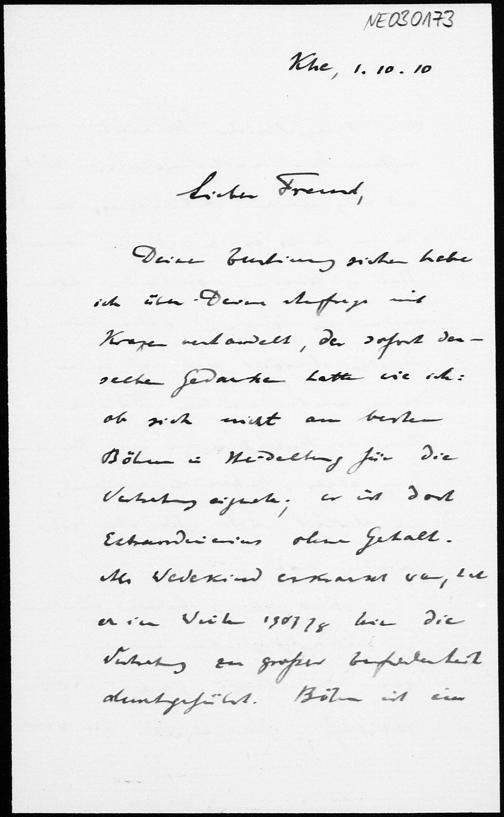 NE030173
Khe, 1.10.10
Lieber Freund,
Deiner habe
ich über Deine Anfrage mit
Krazer verhandelt, der sofort den-
selben Gedanken hatte wie ich:
ob sich nicht am besten
Böhm in Heidelberg für die
Vertretung eignete; er ist dort
Extraordinarius ohne Gehalt.
Als Wedekind erkrankt war, hat
er im Winter 1907/8 hier die
Vertretung zu großer Zufriedenheit
durchgeführt. Böhm ist ein